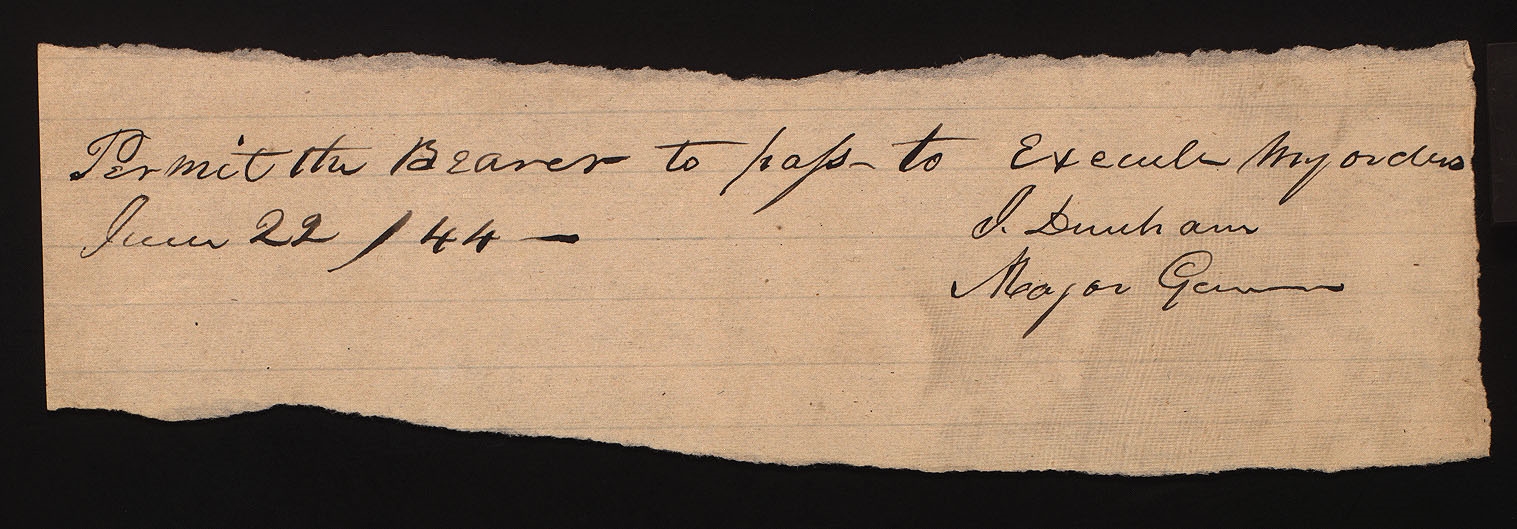 Permit the Bearer to pass to Execute my orders
June 22 / 44 — J. Dunham
Major Genrl